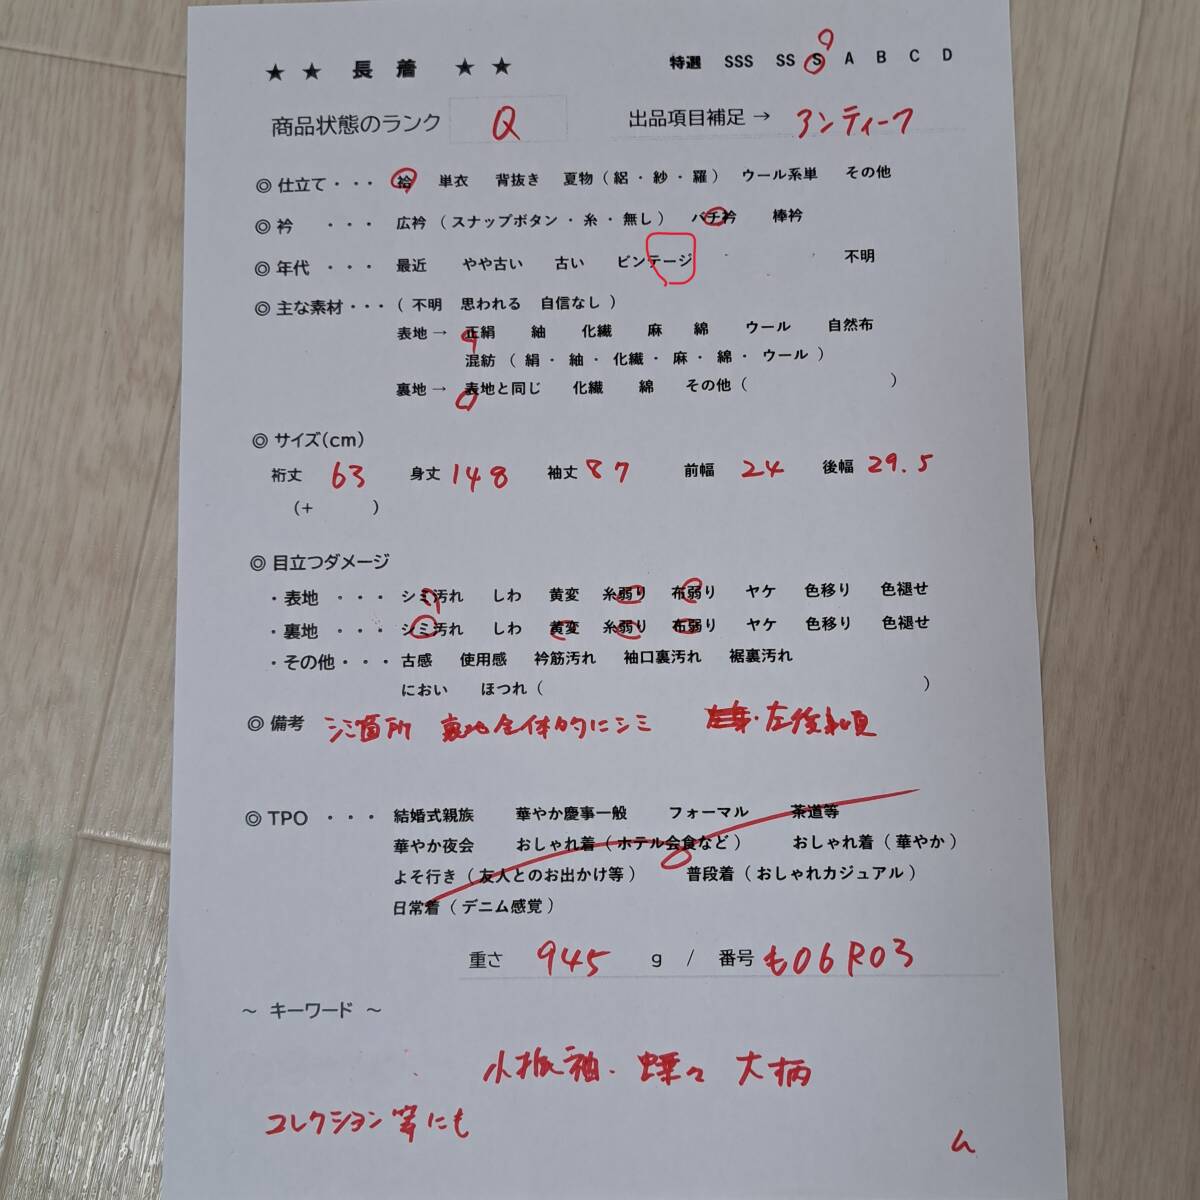 ★ ★ 長 着 ★ ★ 特選 SSS SS S A B C D
商品状態のランク Q 出品項目補足 → アンティーク
◎ 仕立て ・・・ 袷 単衣 背抜き 夏物 ( 絽 ・ 紗 ・ 羅 ) ウール系単 その他
◎ 衿 ・・・ 広衿 ( スナップボタン ・ 糸 ・ 無し ) バチ衿 棒衿
◎ 年代 ・・・ 最近 やや古い 古い ビンテージ 不明
◎ 主な素材 ・・・ ( 不明 思われる 自信なし )
表地 → 正絹 紬 化繊 麻 綿 ウール 自然布
混紡 ( 絹 ・ 紬 ・ 化繊 ・ 麻 ・ 綿 ・ ウール )
裏地 → 表地と同じ 化繊 綿 その他 ( )
◎ サイズ(cm)
裄丈 63 身丈 148 袖丈 87 前幅 24 後幅 29.5
(+ )
◎ 目立つダメージ
・表地 ・・・ シミ汚れ しわ 黄変 糸弱り 布弱り ヤケ 色移り 色褪せ
・裏地 ・・・ シミ汚れ しわ 黄変 糸弱り 布弱り ヤケ 色移り 色褪せ
・その他 ・・・ 古感 使用感 衿筋汚れ 袖口裏汚れ 裾裏汚れ
におい ほつれ ( )
◎ 備考 シミ箇所 裏地全体的にシミ ・左後身頃
◎ TPO ・・・ 結婚式親族 華やか慶事一般 フォーマル 茶道等
華やか夜会 おしゃれ着 ( ホテル会食など ) おしゃれ着 ( 華やか )
よそ行き ( 友人とのお出かけ等 ) 普段着 ( おしゃれカジュアル )
日常着 ( デニム感覚 )
重さ 945 g / 番号 も06R03
～ キーワード ～
小振袖・蝶々 大柄
コレクション等にも
ム